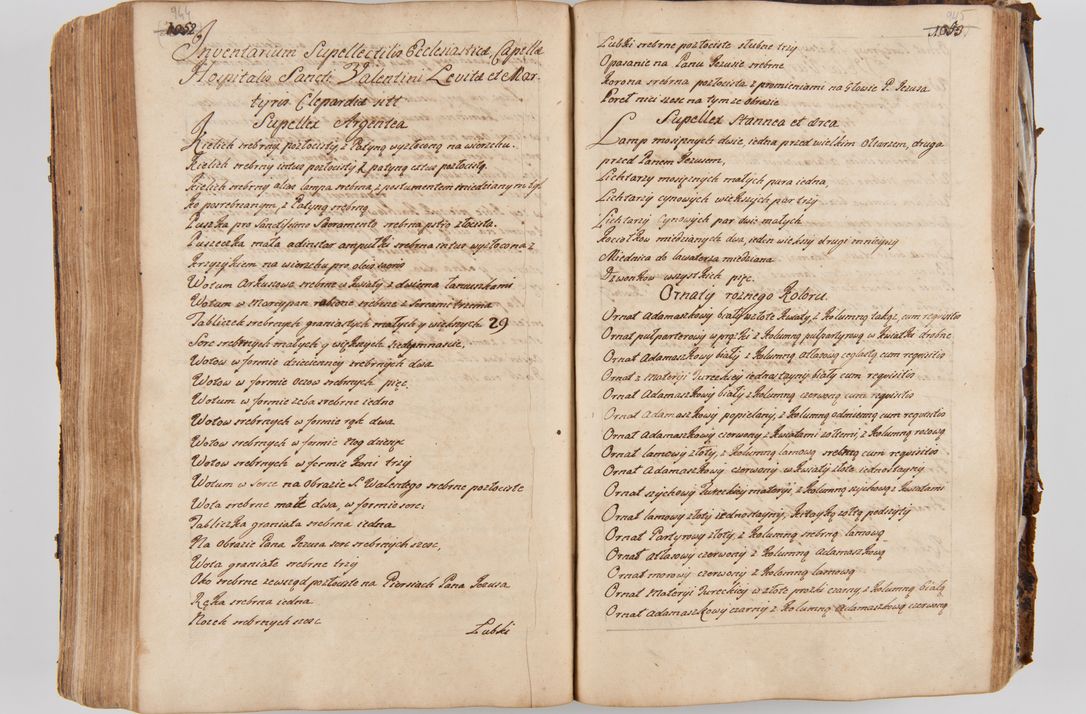 944
1052
Inventarium Supellectilis Ecclesiasticæ Capellæ
Hospitalis Sancti Valentini Levitæ et Mar-
tyris Clepardiæ siti
Supellex Argentea
Kielich srebrny pozłocisty, z Patyną wyzłoconą na wierzchu.
Kielich srebrny intus pozłocisty z patyną całą pozłocistą
Kielich srebrny alias lampa srebrna, z postumentem miedzianym tyl
ko posrebrzanym, z Patyną srebrną
Puszka pro Sanctissimo Sacramento srebrna pstro złocista.
Puszeczka mała ad instar ampułki srebrna intus wyzłocona z
krzyżykiem na wierzchu pro oleis sacris
Wotum Arkusowe srebrne w kwiaty z dwiema łancuszkami
Wotum w Marcypan srebrne z Sercami trzema
Tabliczek srebrnych graniastych małych y większych 29
Serc srebrnych małych y większych siedymnascie,
Wotow w formie dziecienney srebrnych dwa
Wotow w formie oczow srebrnych pięc.
Wotum w formie zęba srebrne iedno
Wotow srebrnych w formie rąk dwa
Wotow srebrnych w formie nog
Wotow srebrnych w formie koni trzy
Wotum w Serce na obrazie S. Walentego srebrne pozłociste
Wota srebrne małe dwa, w formie serc;
Tabliczka graniasta srebrna iedna
Na obrazie Pana Jezusa serc srebrnych szesc,
Wota graniaste srebrne trzy
Oko srebrne zewsząd pozłociste na Piersiach Pana Jezusa
Ręka srebrna iedna
Nozek srebrnych szesc
Lubki
945
1053
Lubki srebrne pozłociste slubne trzy
Opasanie na Panu Jezusie srebrne
Korona srebrna pozłocista z promieniami na Głowie P. Jezusa
Pereł nici szesc na tymze obrazie
Supellex Stannea et ærea
Lamp mosiężnych dwie, iedna przed wielkim Ołtarzem, druga
przed Panem Jezusem,
Lichtarzy mosięznych małych para iedna,
Lichtarzy cynowych większych par trzy
Lichtarzy Cynowych par dwie małych
Kociołkow miedzianych dwa, ieden większy drugi mnieyszy
Miednica do lawaterza miedziana
Dzwonkow wszystkich pięc.
Ornaty roznego Koloru
Ornat Adamaszkowy biały w złote kwiaty, z Kolumną takąz, cum requisitis
Ornat pulparterowy w prążki z Kolumną pulparterową w kwiatki drobne
Ornat Adamaszkowy biały, z Kolumną atłasową ceglastą cum requisitis
Ornat z Materyi Tureckiey iednostayny biały cum requisitis
Ornat Adamaszkowy biały z Kolumną czerwoną cum requisitis
Ornat Adamaszkowy popielaty, z Kolumną odmienną cum requisitis
Ornat Adamaszkowy czerwony z kwiatami zołtemi, z Kolumną rzezową
Ornat lamowy złoty, z Kolumną lamową srebrną cum requisitis
Ornat Adamaszkowy czerwony w kwiaty złote iednostayny
Ornat szychowy Tureckiey materyi, z Kolumną szychową z kwiatami
Ornat lamowy złoty iednostayny, Kitayką zołtą podszyty
Ornat Partyrowy złoty, z Kolumną srebrną lamową
Ornat atłasowy czerwony z Kolumną Adamaszkową
Ornat morowy czerwony z Kolumną lamową
Ornat Materyi Tureckiey w złote prożki czarny, z Kolumną białą
Ornat Adamaszkowy czarny z Kolumną Adamaszkową czerwoną